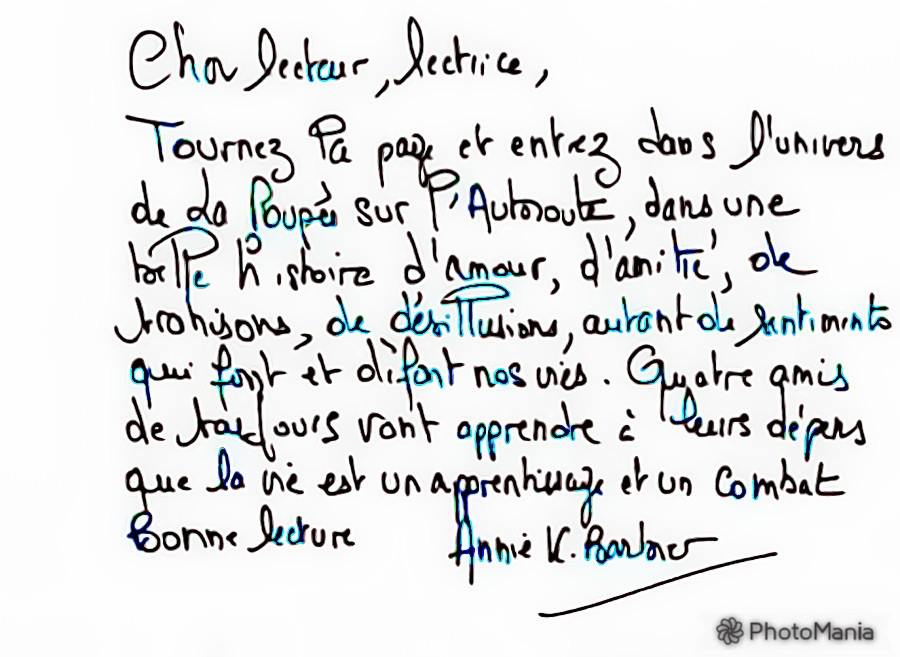 Cher lecteur, lectrice,
Tournez la page et entrez dans l'univers
de La Poupée sur l'Autoroute, dans une
belle histoire d'amour, d'amitié, de
trahisons, de désillusions, autant de sentiments
qui font et défont nos vies. Quatre amis
de toujours vont apprendre à leurs dépens
que la vie est un apprentissage et un combat
Bonne lecture Annie K. Barbier
PhotoMania